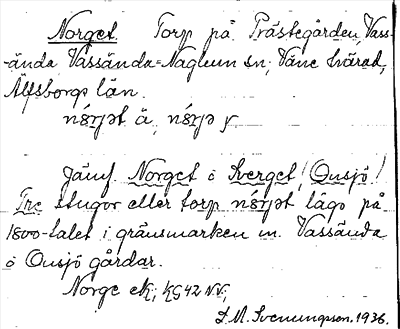 Norget. Torp på Prästegården, Vass-
ända Vassända-Naglum sn, Väne härad,
Älfsborgs län.
Jämf. Norget o Sverget (Onsjö)!
Tre stugor eller torp nɷ́rjət lågo på
1800-talet i gränsmarken m. Vassända
o Onsjö gårdar.
Norge ek; KG42 NV,
D.M. Svenungsson. 1936.